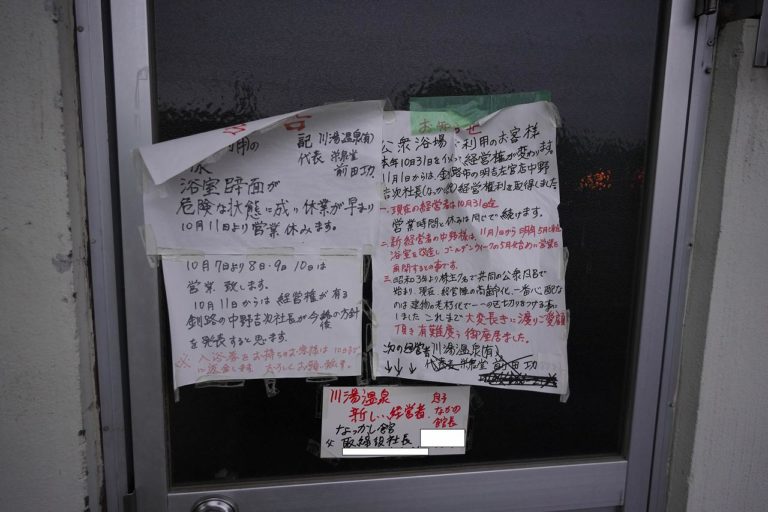 告
用の
様
記 川湯温泉(有)
代表 栄泉堂
前田功
浴室壁面が
危険な状態に成り 休業が早まり
10月11日より営業休みます。
10月7日より8日・9日 10日は
営業 致します。
10月11日からは 経営権が有る
釧路の中野吉次社長が今後の方針
を発表すると思います。
入浴券をお持ちのお客様は 10日まで
に返金します よろしくお願い致します。
お知らせ
公衆浴場ご利用のお客様
本年10月31日を以って経営権が変わります。
11月1日からは、釧路市の
吉次社長(なか 経営権利を取得しました
一、現在の経営者は10月31日迄
営業時間と休みは同じで続けます。
二、新経営者の中野様は、11月1日から明年5月
浴室を改造しゴールデンウィークの5月始めに営業を
再開するとの事です。
三、昭和3年より株主7名で共同の公衆浴場で
始まり、現在 経営陣の高齢化、一番心配な
のは建物の老朽化で一つの区切りをつける事に
しました これまで大変長きに渡りご愛顧
頂き有難度う御座居ました。
次の経営者 川湯温泉(有)
代表 栄泉堂 前田功
川湯温泉
新しい経営者、
なかの
館長
なつかし館
取締役社長